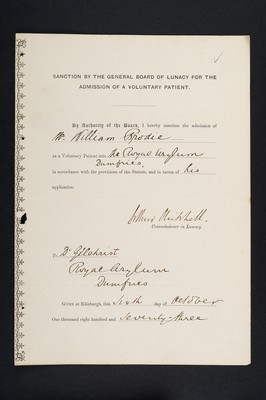 SANCTION BY THE GENERAL BOARD OF LUNACY FOR THE
ADMISSION OF A VOLUNTARY PATIENT.
By Authority of the Board, I hereby sanction the admission of
Mr. William Brodie
as a Voluntary Patient into the Royal Asylum
Dumfries,
in accordance with the provisions of the Statute, and in terms of his
application.
Arthur Mitchell.
Commissioner in Lunacy.
To Dr Gilchrist
Royal Asylum
Dumfries
GIVEN at Edinburgh, this Sixth day of October
One thousand eight hundred and seventy-three